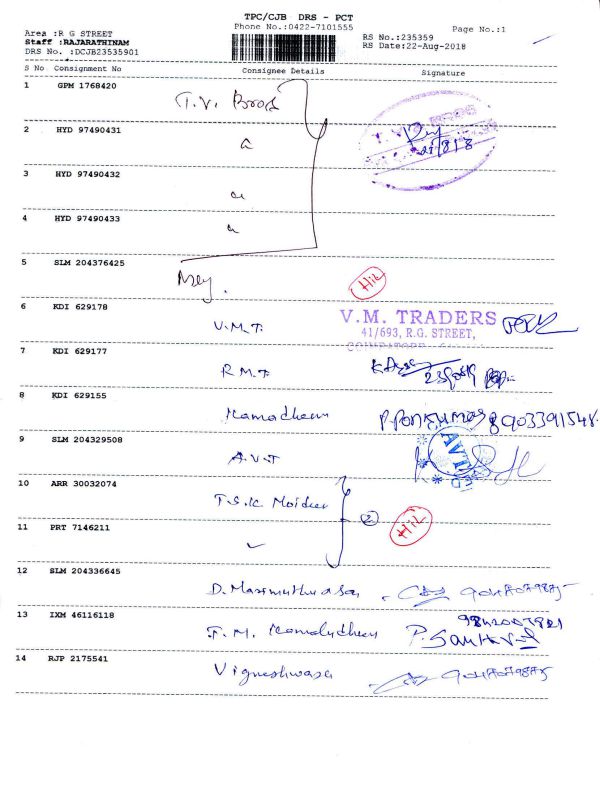 TPC/CJB DRS - PCT
Phone No.:0422-7101555
Page No.:1
Area :R G STREET
Staff :RAJARATHINAM
DRS No. :DCJB23535901
RS No.:235359
RS Date:22-Aug-2018
S No Consignment No Consignee Details Signature
1 GPM 1768420
T.V. Bros
2 HYD 97490431
3 HYD 97490432
4 HYD 97490433
5 SLM 204376425
Hil
6 KDI 629178
V.M.T.
V.M. TRADERS
41/693, R.G. STREET,
7 KDI 629177
R.M.T.
8 KDI 629155
Kamadhenu
P. Ponkumar 8903391548
9 SLM 204329508
A.V.T
10 ARR 30032074
T.S.K Moideen
2
Hil
11 PRT 7146211
12 SLM 204336645
D. Marimuthu
13 IXM 46116118
T. M. Kamaludheen
9842007821
14 RJP 2175541
Vigneshwara